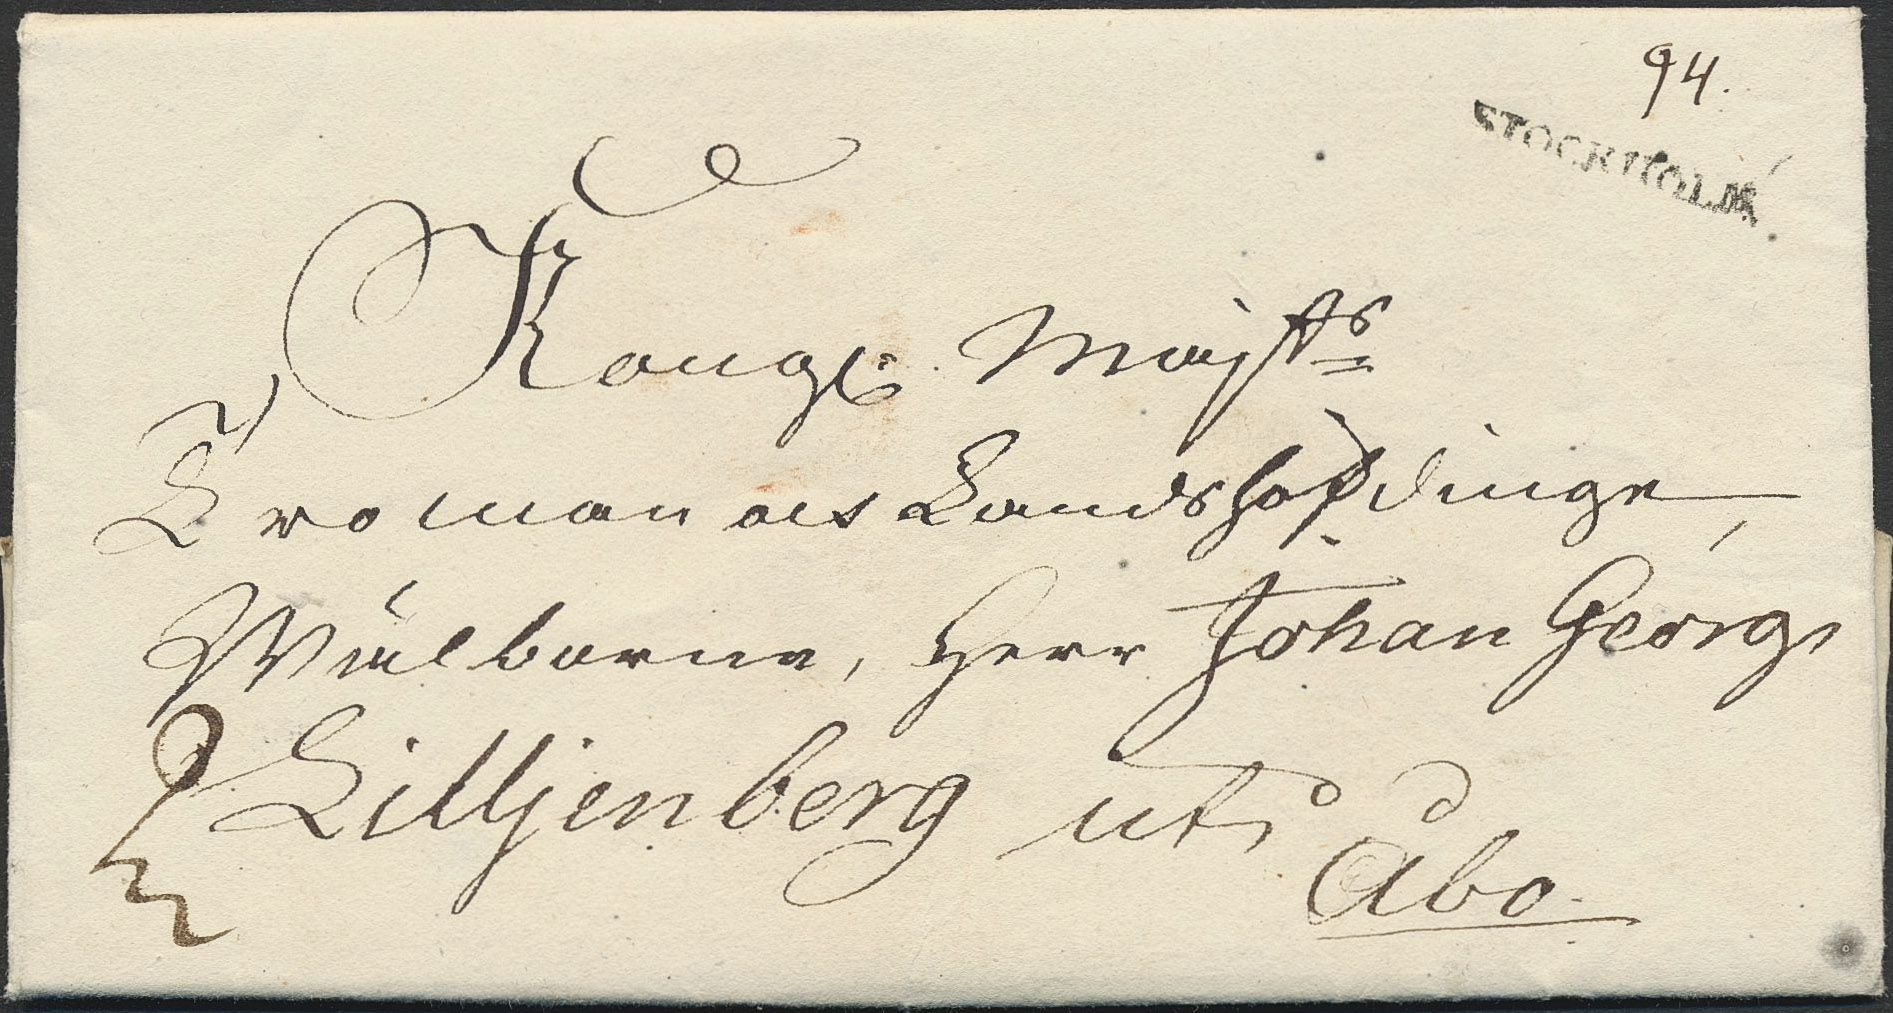 94.
STOCKHOLM
Kongl: Maijts
Troman och Landshöfdinge,
Wälborne, Herr Johan Georg
Lilljenberg uti
Åbo.